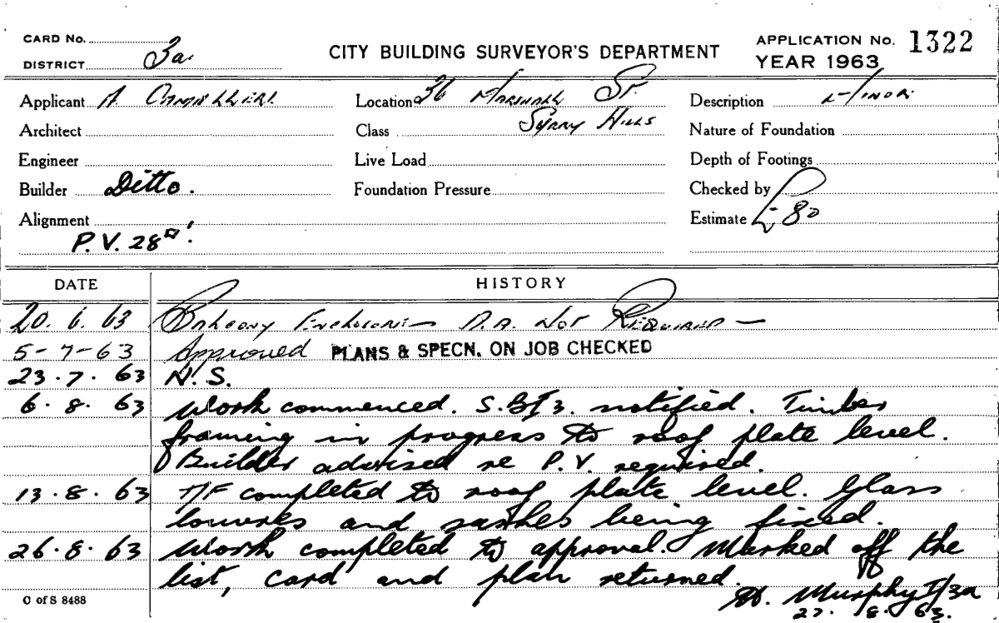 CARD No.
DISTRICT 3a
CITY BUILDING SURVEYOR'S DEPARTMENT
APPLICATION No. 1322
YEAR 1963
Applicant A Camilleri
Location 36 Marshall St
Surry Hills
Description Minor
Architect
Class
Nature of Foundation
Engineer
Live Load
Depth of Footings
Builder Ditto.
Foundation Pressure
Checked by
Alignment
Estimate £80
P.V. 28
DATE HISTORY
20. 6. 63 Balcony Enclosure — D.A. Not Required —
5-7-63 Approved PLANS & SPECN. ON JOB CHECKED
23.7.63 N.S.
6.8.63 Work commenced. S.B.I 3. notified. Timber
framing in progress to roof plate level.
Builder advised re P.V. required.
13.8.63 T/F completed to roof plate level. Glass
louvres and sashes being fixed.
26.8.63 Work completed to approval. Marked off the
list, card and plan returned.
Murphy I/3a
27. 8. 63.
C of S 8488